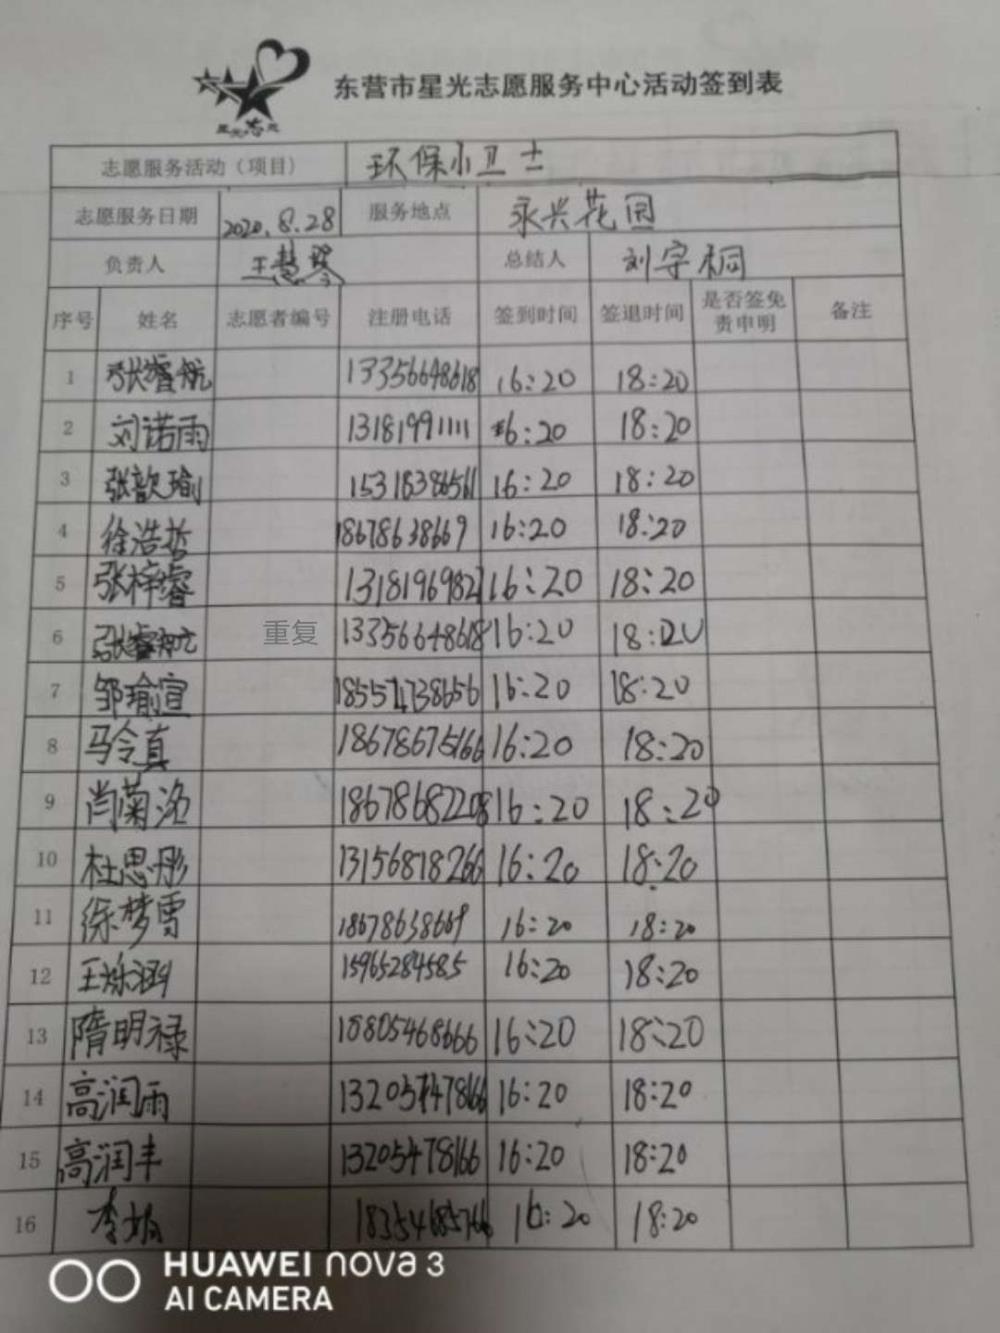 星光志愿
东营市星光志愿服务中心活动签到表
志愿服务活动（项目） 环保小卫士
志愿服务日期 2020.8.28 服务地点 永兴花园
负责人 王慧琴 总结人 刘宇桐
序号 姓名 志愿者编号 注册电话 签到时间 签退时间 是否签免责申明 备注
1 张睿航 13356648618 16:20 18:20
2 刘诺雨 13181991111 16:20 18:20
3 张歆瑜 15318386561 16:20 18:20
4 徐浩哲 18678638669 16:20 18:20
5 张梓睿 13181969827 16:20 18:20
6 张睿航 重复 13356648618 16:20 18:20
7 邹瑜宣 18557 16:20 18:20
8 马令真 18678675166 16:20 18:20
9 肖菊洺 18678682208 16:20 18:20
10 杜思彤 13156878266 16:20 18:20
11 徐梦雪 18678638669 16:20 18:20
12 王烁涵 15965284585 16:20 18:20
13 隋明禄 18805468666 16:20 18:20
14 高润雨 16:20 18:20
15 高润丰 13205478166 16:20 18:20
16 李娟 18354685766 16:20 18:20
HUAWEI nova 3
AI CAMERA